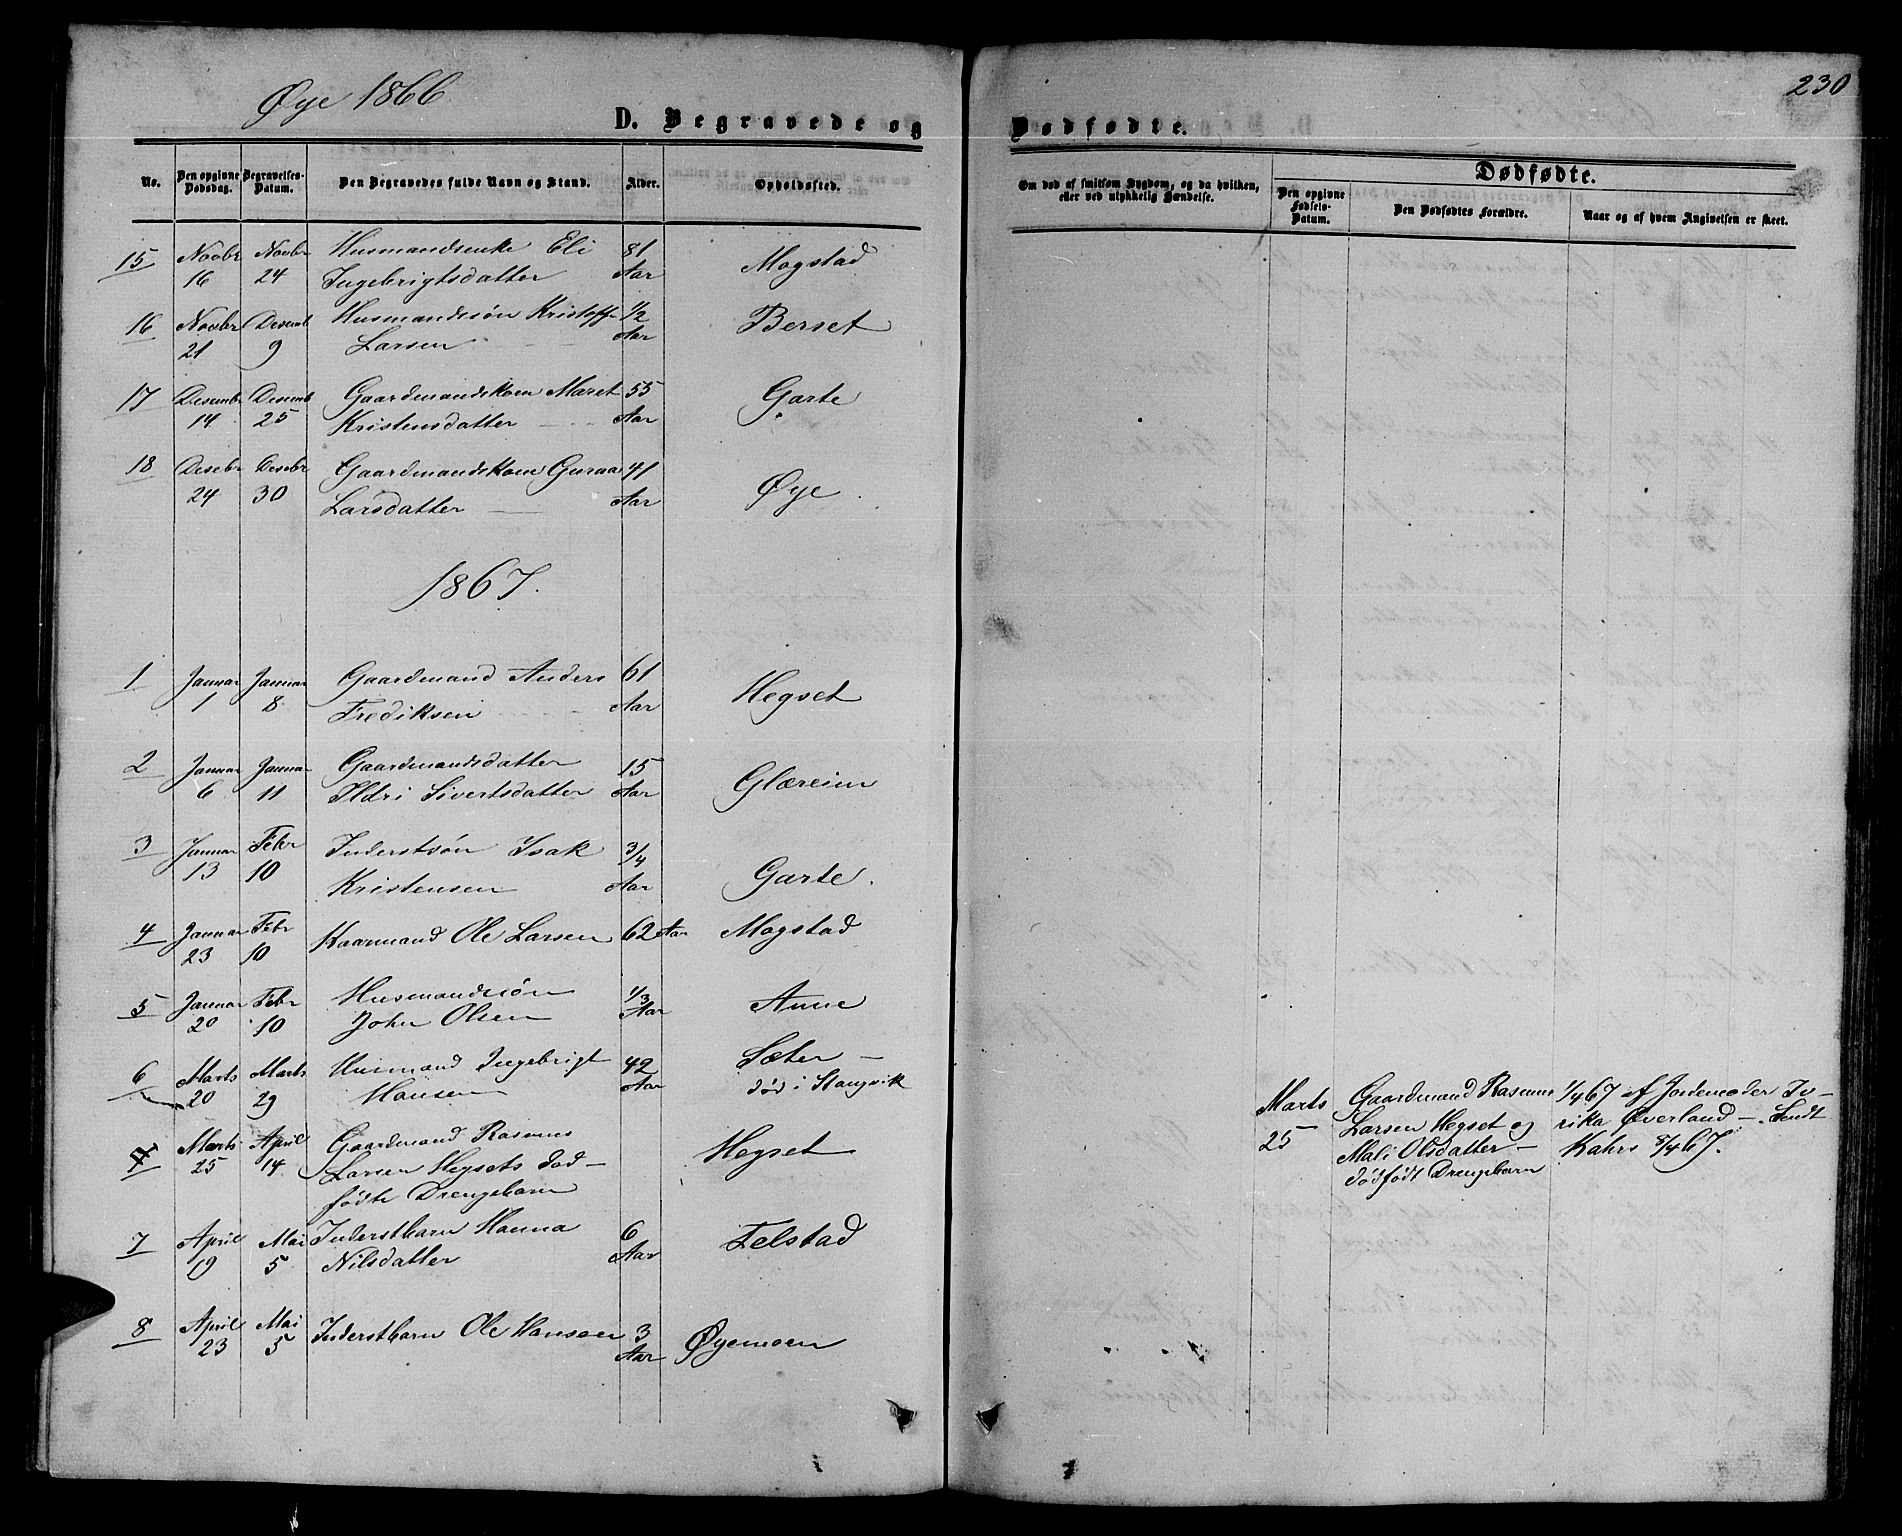 Øye 1866
230
D. Begravede og
Dødfødte.
No.
Den opgivne Dødsdag.
Begravelses-Datum.
Den Begravedes fulde Navn og Stand.
Alder.
Opholdssted.
Om død af smitsom Sygdom, og da hvilken,
eller ved ulykkelig Hændelse.
Dødfødte.
Den opgivne Fødsels-Datum.
Den Dødfødtes Forældre.
Naar og af hvem Angivelsen er skeet.
15 Novbr Novbr Husmandsenke Eli 81
16 24 Ingebrigtsdatter Aar Mogstad
16 Novbr Desemb Husmandssøn Kristoff 1/2
21 9 Larsen Aar Berset
17 Desembr Desemb Gaardmandskone Maret 55
14 25 Kristensdatter Aar Garte
18 Desebr Desebr Gaardmandskone Guraa 41
24 30 Larsdatter Aar Øye.
1867.
1 Januar Januar Gaardmand Anders 61
1 8 Frediksen Aar Hegset
2 Januar Januar Gaardmandsdatter 15
6 11 Ildri Sivertsdatter Aar Glæreim
3 Januar Febr Inderstsøn Isak 3/4
13 10 Kristensen Aar Garte.
4 Januar Febr Kaarmand Ole Larsen 62 Aar Mogstad
23 10
5 Januar Febr Husmandssøn 1/3
20 10 John Olsen Aar Aune
6 Marts Marts Husmand Ingebrigt 42 Sæter –
20 29 Hansen Aar død i Stangvik
Marts April Gaardmand Rasmus
25 14 Larsen Hegsets død-
fødte Drengebarn
Hegset
Marts
25
Gaardmand Rasmus
Larsen Hegset og
Mali Olsdatter –
dødfødt Drengebarn
1/4 67 af Jordemoder
Øverland –
8/4 67.
7 April Mai Inderstbarn Hanna 6
19 5 Nilsdatter Aar Felstad
8 April Mai Inderstbarn Ole Hansen 3
23 5 Aar Øyemoen